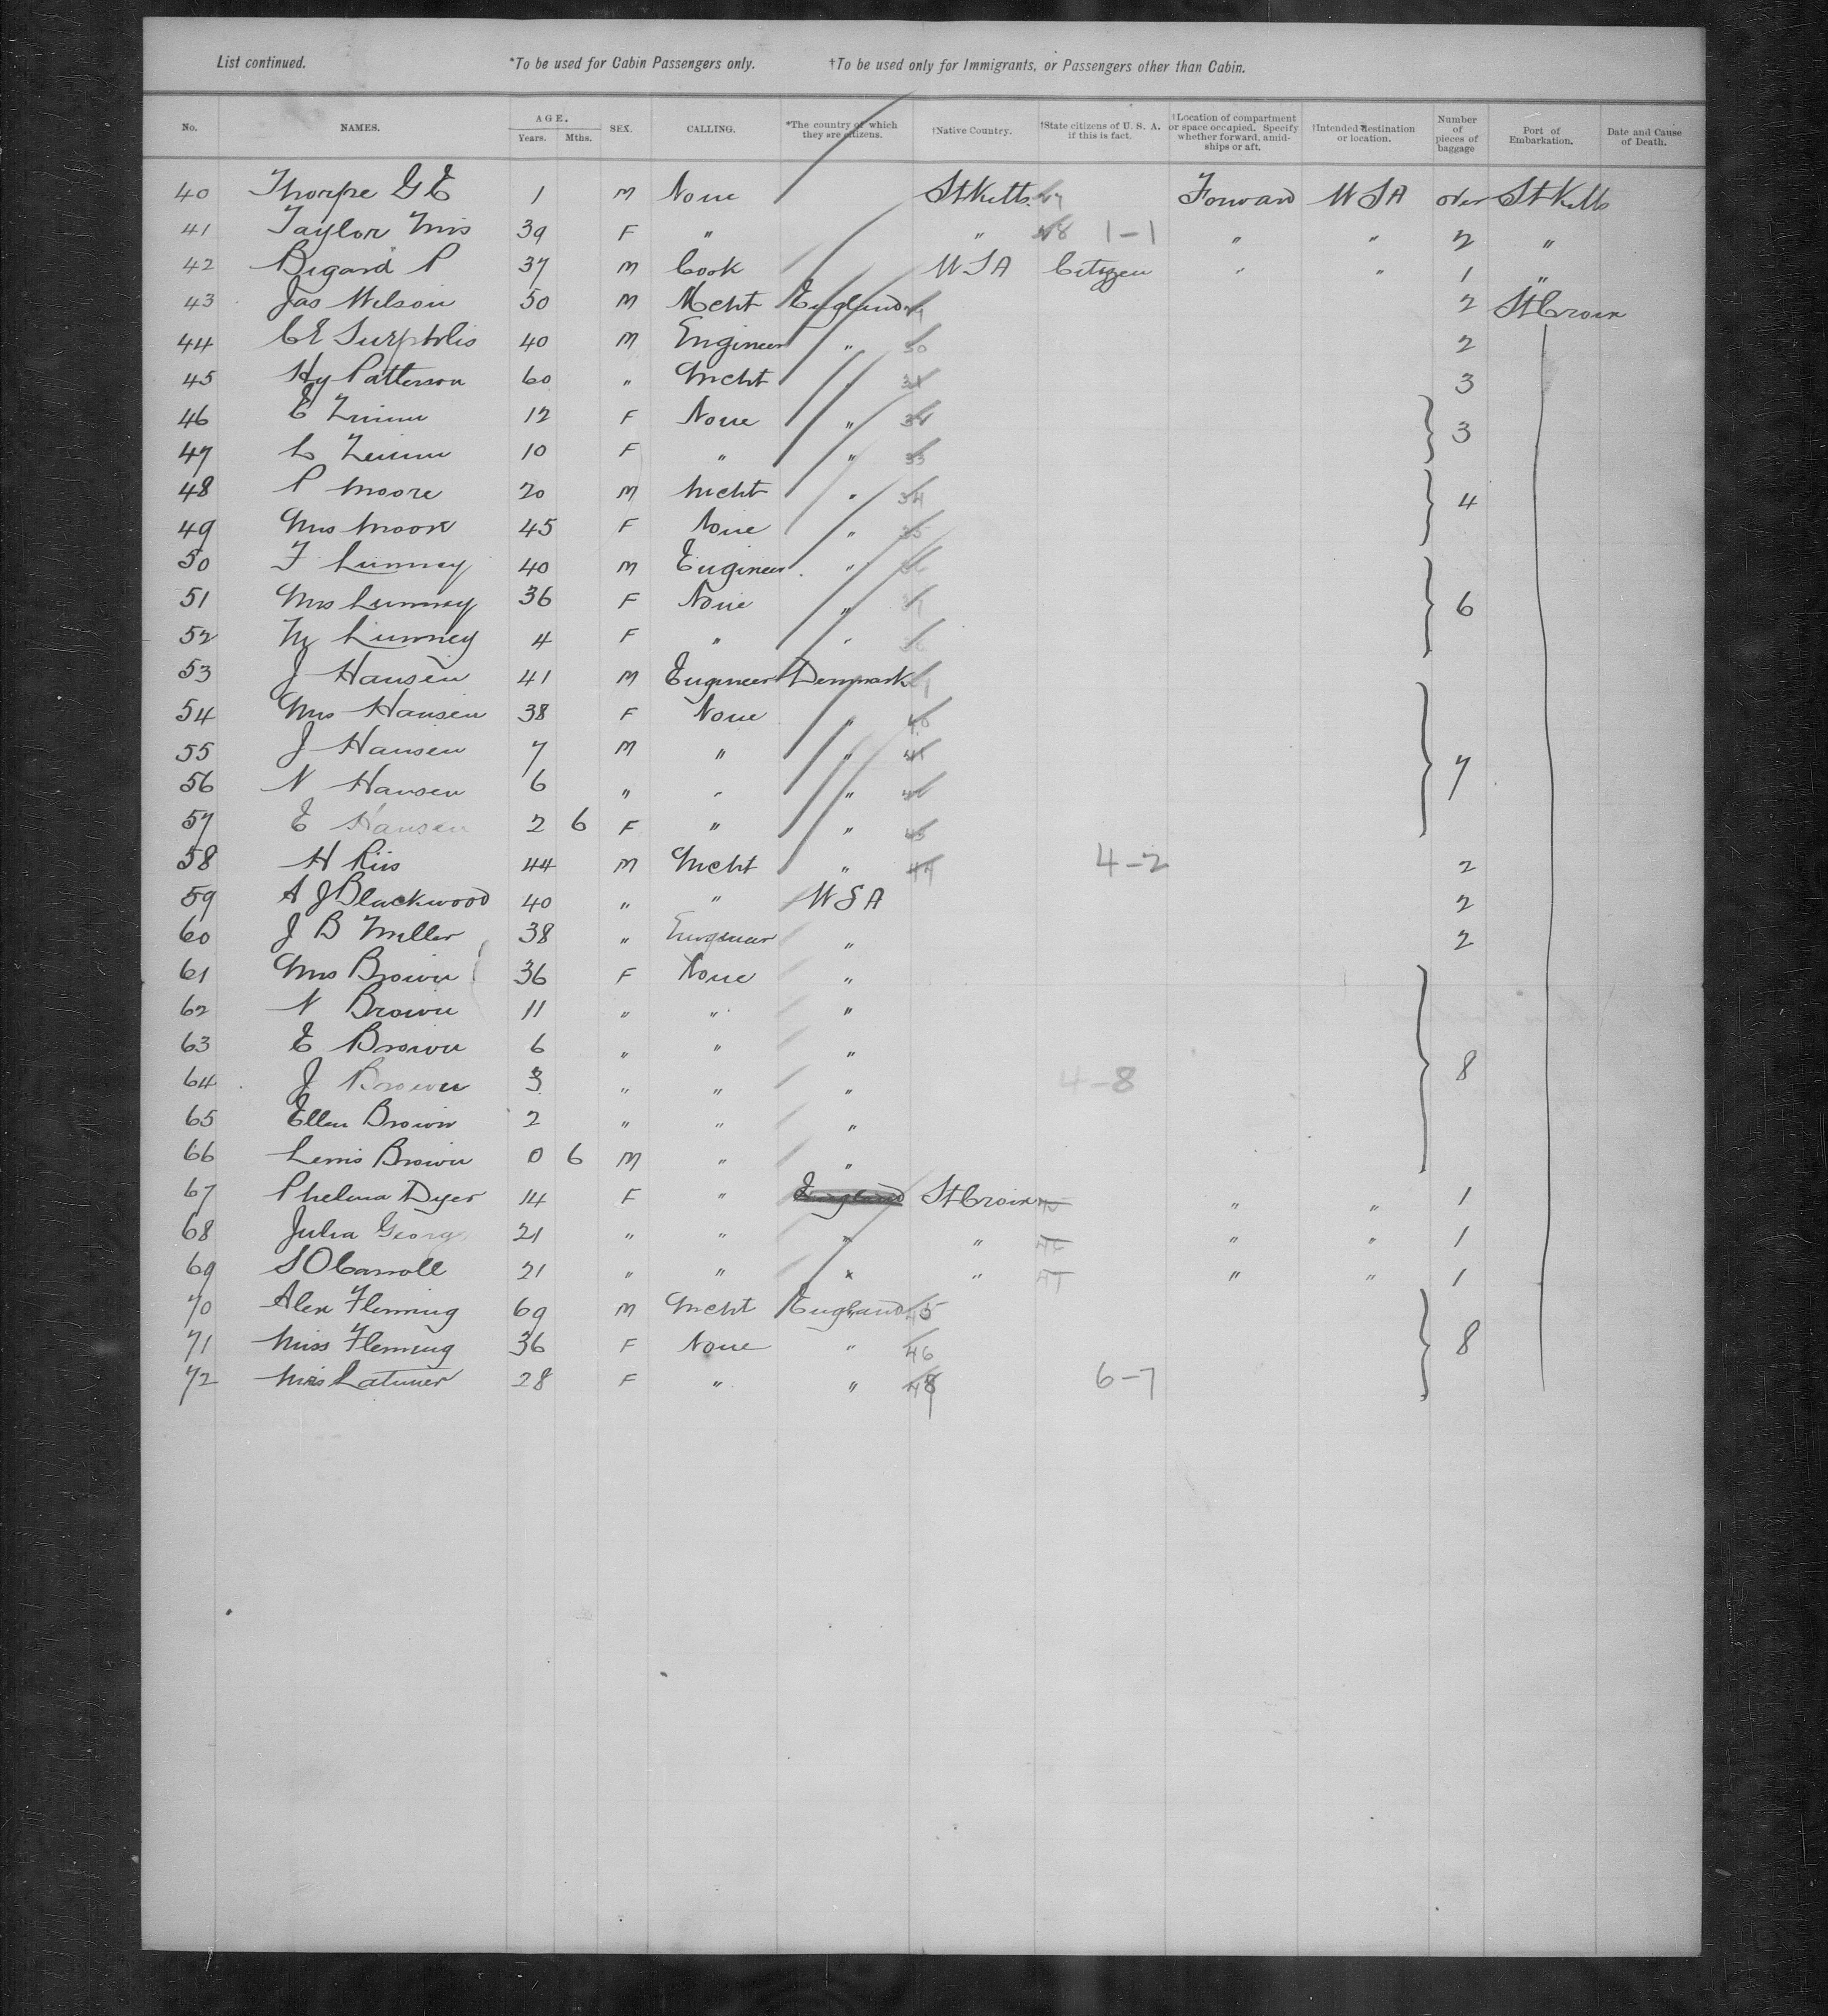 List continued. *To be used for Cabin Passengers only. †To be used only for Immigrants, or Passengers other than Cabin.
No. NAMES. AGE. Years. Mths. SEX. CALLING. *The country of which they are citizens. †Native Country. †State citizens of U. S. A. if this is fact. †Location of compartment or space occupied. Specify whether forward, amidships or aft. †Intended destination or location. Number of pieces of baggage Port of Embarkation. Date and Cause of Death.
40 Thorpe G E 1 M None St Kitts Forward U S A St Kitts
41 Taylor Mrs 39 F " " 48 1-1 " " 2 "
42 Bigard P 37 M Cook U S A Citizen " " 1 "
43 Jas Wilson 50 M Mcht England 2 St Croix
44 C E 40 M Engineer " 30 2
45 Hy Patterson 60 " Mcht " 31 3
46 E 12 F None "
47 10 F " " 33 3
48 P Moore 20 M Mcht " 34
49 Mrs Moore 45 F None " 35 4
50 F Lumney 40 M Engineer "
51 Mrs Lumney 36 F None " 6
52 M Lumney 4 F " "
53 J Hansen 41 M Engineer Denmark
54 Mrs Hansen 38 F None " 40
55 J Hansen 7 M " " 41
56 N Hansen 6 " " " 7
57 E Hansen 2 6 F " "
58 H Riis 44 M Mcht " 44 4-2 2
59 A J Blackwood 40 " " U S A 2
60 J B Miller 38 " Engineer " 2
61 Mrs Brown 36 F None "
62 N Brown 11 " " "
63 E Brown 6 " " "
64 J Brown 3 " " " 4-8 8
65 Ellen Brown 2 " " "
66 Brown 0 6 M " "
67 Phelma Dyer 14 F " England St Croix " " 1
68 Julia Georg 21 " " " " " " 1
69 S O Carroll 21 " " " " " " 1
70 Alex Fleming 69 M Mcht England 45
71 Miss Fleming 36 F None " 46 8
72 Latimer 28 F " " 6-7